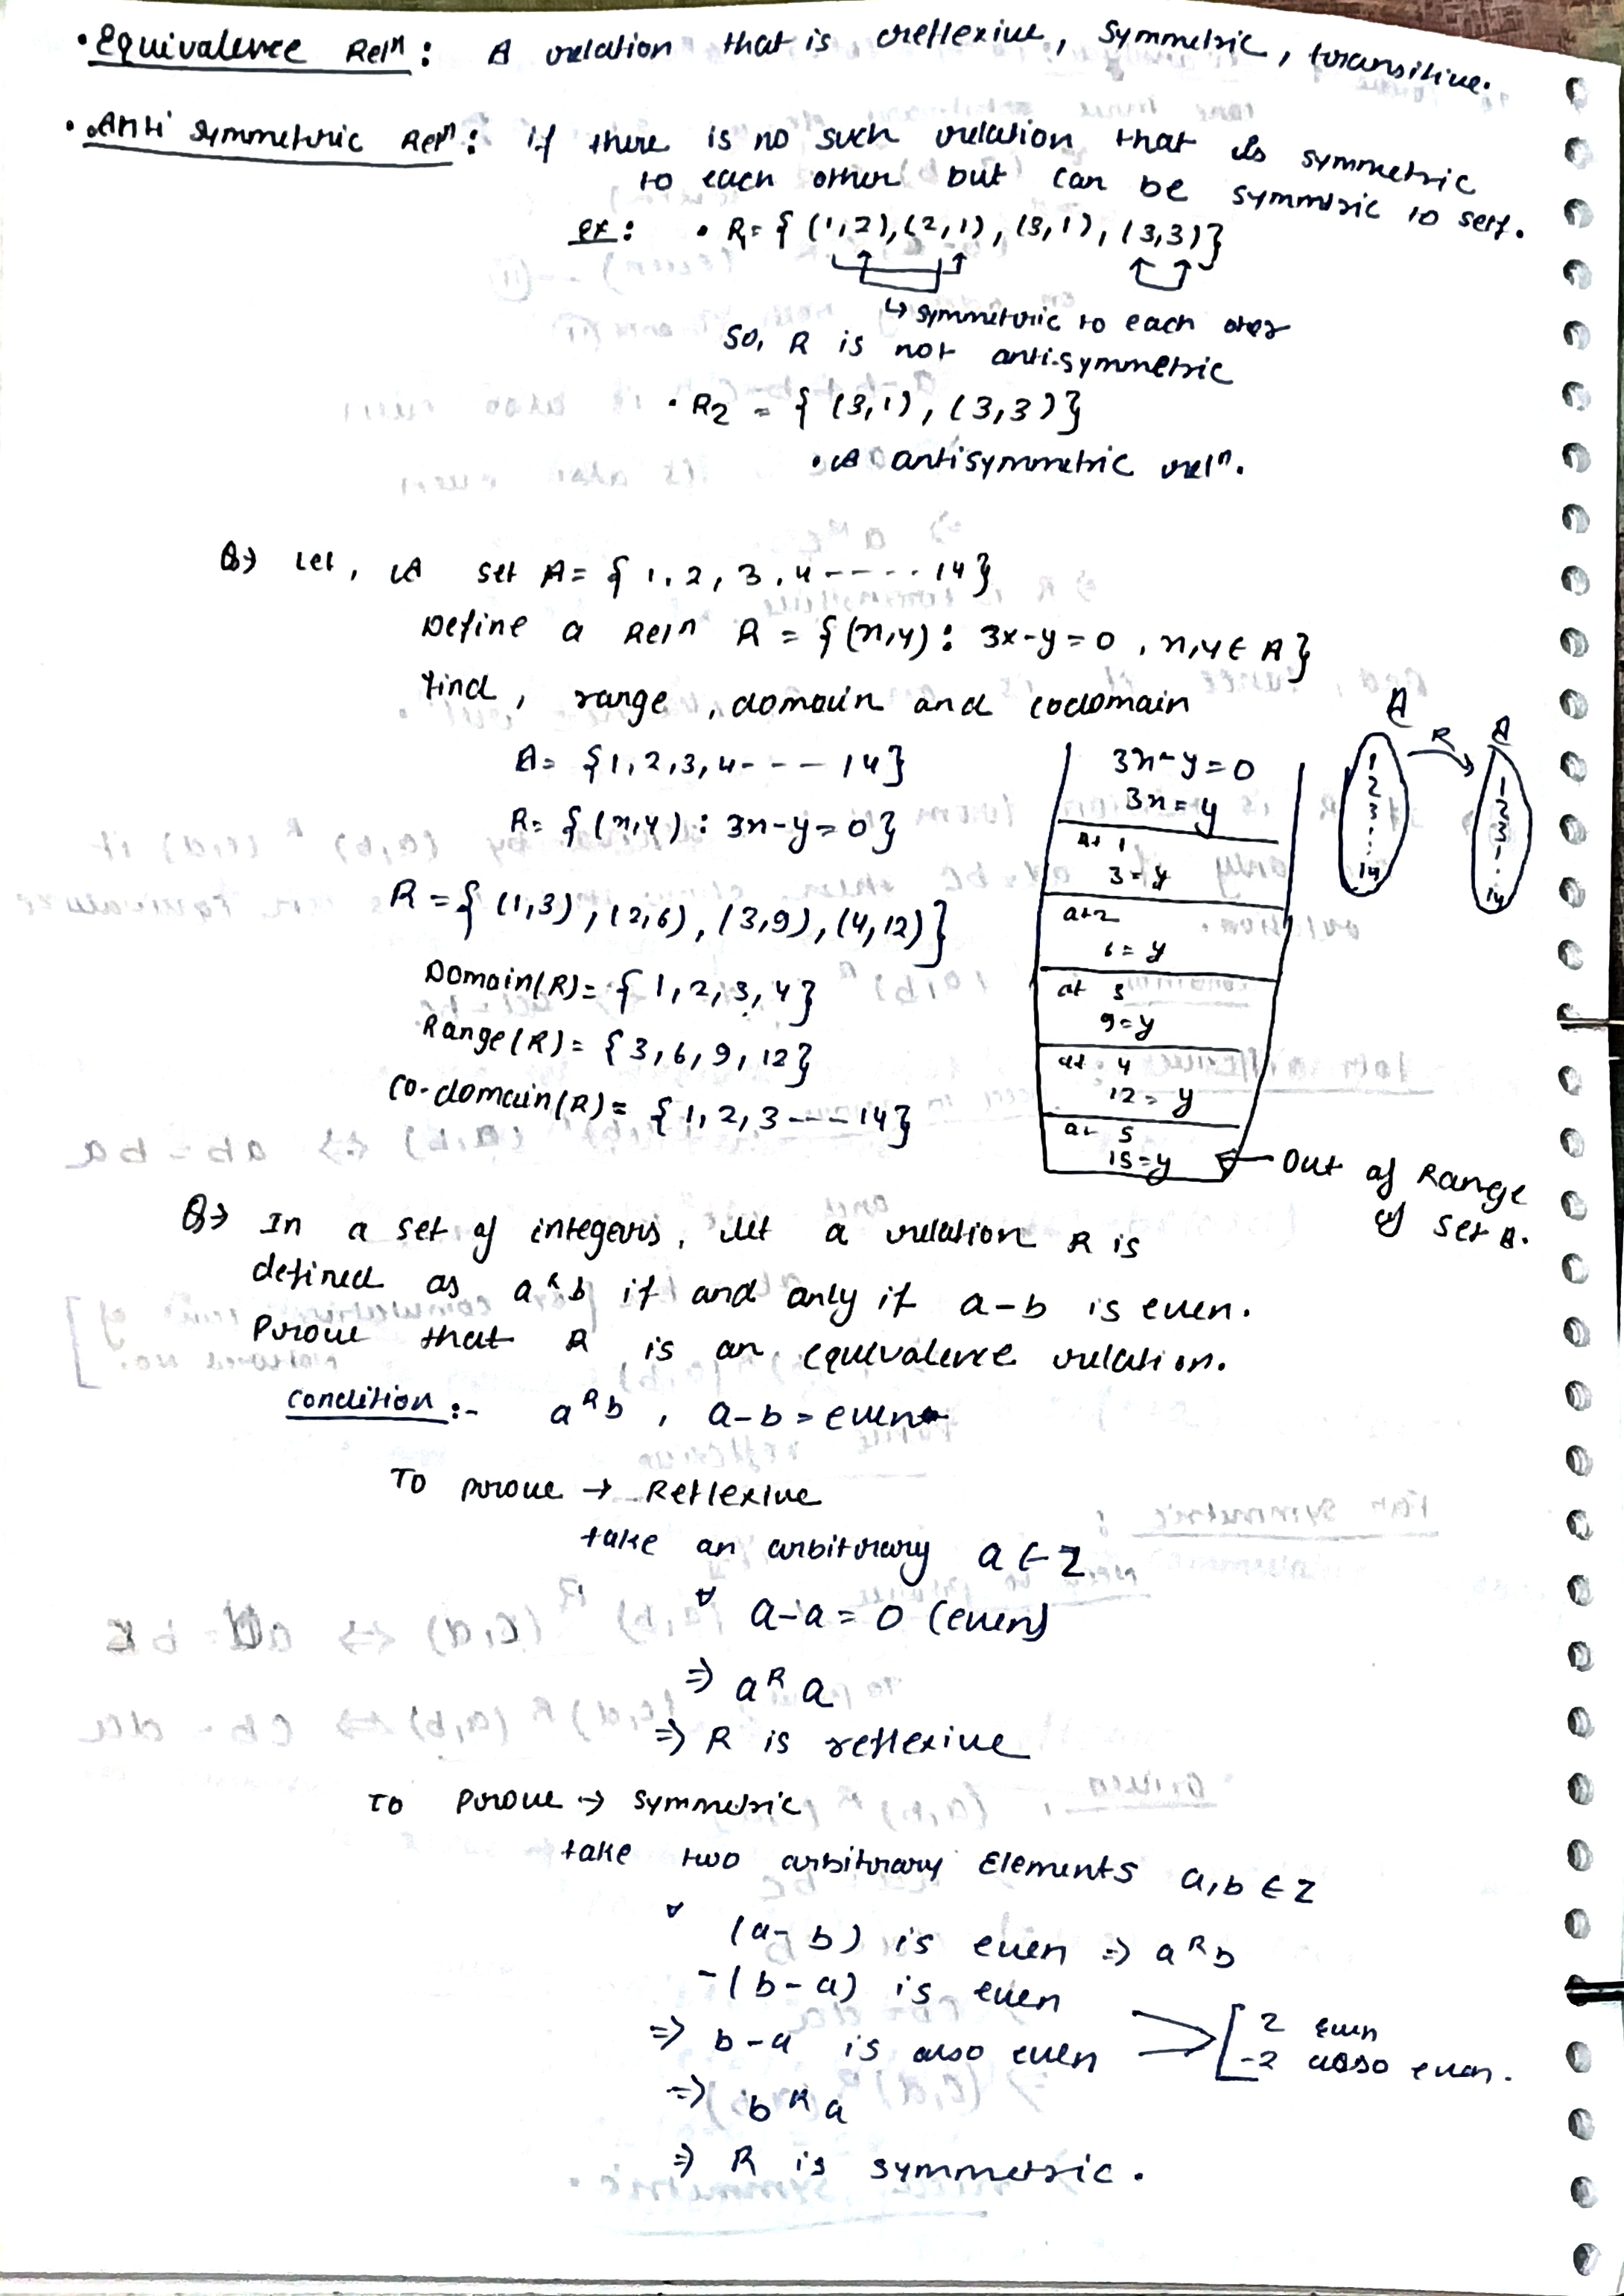 • Equivalence Relⁿ : A relation that is reflexive, symmetric, transitive.
• Anti symmetric Relⁿ : if there is no such relation that is symmetric
to each other but can be symmetric to self.
ex : • R₁ = { (1,2), (2,1), (3,1), (3,3)}
↳ symmetric to each other
So, R is not antisymmetric
• R2 = { (3,1), (3,3)}
• A antisymmetric relⁿ.
Q→ Let, A set A = { 1, 2, 3, 4 ----- 14}
Define a Relⁿ R = {(x,y) : 3x-y = 0 , x,y ∈ A}
find, range, domain and codomain
A = {1,2,3,4 --- 14}
R = {(x,y) : 3x-y=0}
R = { (1,3), (2,6), (3,9), (4,12)}
Domain(R) = { 1, 2, 3, 4}
Range(R) = { 3, 6, 9, 12}
Co-domain(R) = { 1, 2, 3 ---- 14}
3x-y=0
3x = y
at 1
3 = y
at 2
6 = y
at 3
9 = y
at 4
12 = y
at 5
15 = y ← Out of Range
of set A.
A R A
1 1
2 2
3 3
14 14
Q→ In a set of integers, let a relation R is
defined as a ᴿ b if and only if a-b is even.
Prove that R is an equivalence relation.
Condition :- a ᴿ b , a-b = even
To prove → Reflexive
take an arbitrary a ∈ Z
∀ a-a = 0 (even)
⇒ a ᴿ a
⇒ R is reflexive
To prove → symmetric
take two arbitrary Elements a,b ∈ Z
∀ (a-b) is even ⇒ a ᴿ b
-(b-a) is even
⇒ b-a is also even → [ 2 even
-2 also even.
⇒ b ᴿ a
⇒ R is symmetric.